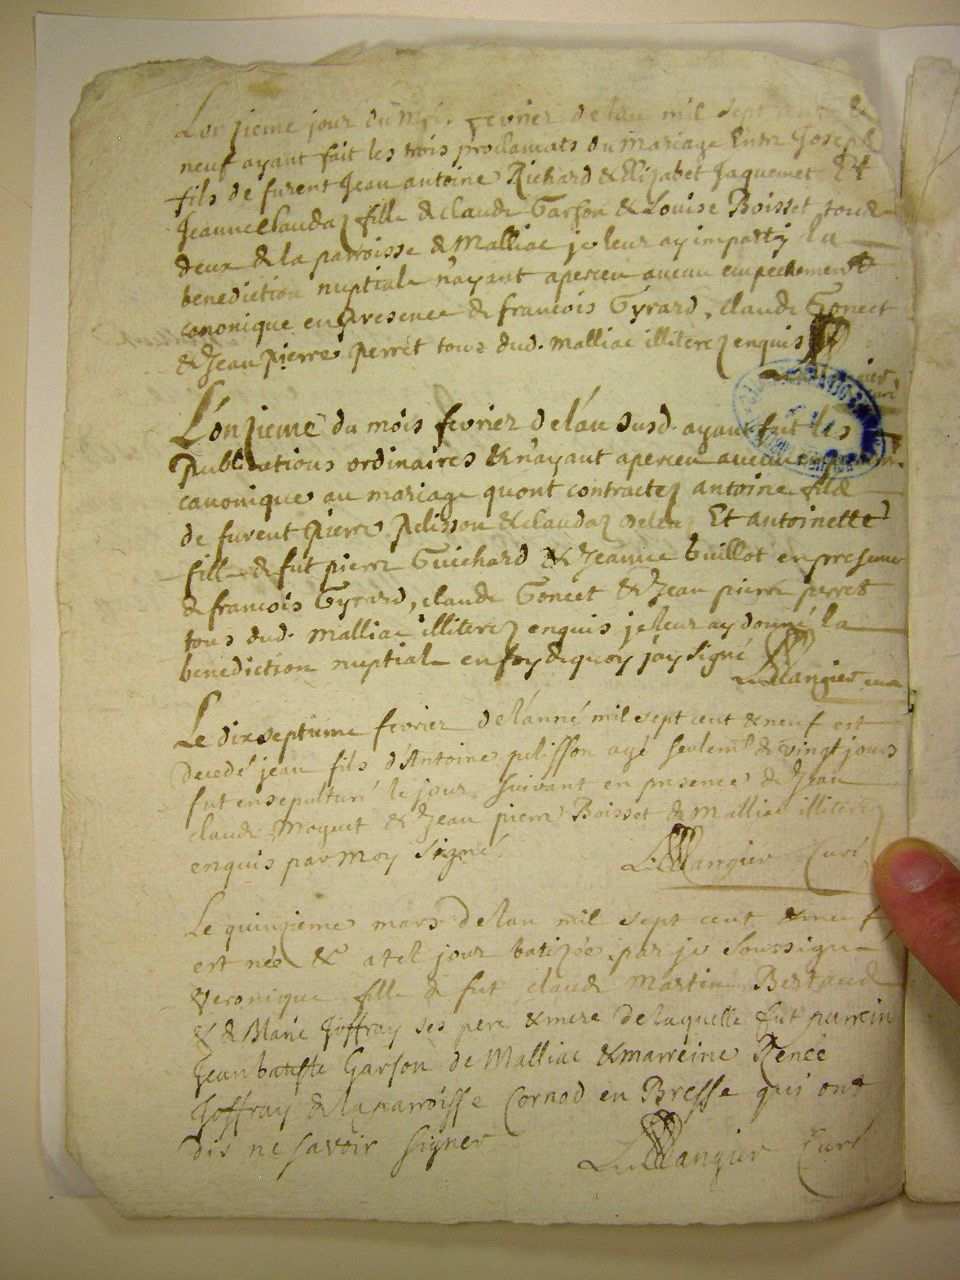 Lonzieme jour du mois fevrier de lan mil sept
neuf ayant fait les trois proclamats du mariage Entre Joseph
fils de furent Jean antoine Richard & Elizabet Jaquemet Et
Jeanne Claudaz fille de Claude Garson & Louise Boisset tous
deux de la parroisse de Malliac je leur ay imparty la
benediction nuptiale n'ayant aperceu aucun empechement
canonique en presence de francois Gyrard, Claude Goncet
& Jean pierre perret tous dud. Malliac illiterez enquis
L'onzieme du mois fevrier de lan susd. ayant fait les
publications ordinaires & n'ayant aperceu aucun
canonique au mariage quont contractez antoine fils
de furent pierre Pelisson & Claudaz Et antoinette
fille de fut pierre Guichard & Jeanne Guillot en presence
de francois Gyrard, claude Goncet & Jean pierre perret
tous dud. Malliac illiterez enquis je leur ay donné la
benediction nuptiale en foy de quoy j'ay signé
Le dixseptieme fevrier de l'anné mil sept cent & neuf est
decedé jean fils d'Antoine pelisson agé seulemt de vingt jours
fut ensepulturé le jour suivant en presence de Jean
claude Moquet & Jean pierre Boisset de Malliac illiterez
enquis par moy signé
Curé
Le quinzieme mars de lan mil sept cent & neuf
est née & a tel jour batizée par je soussigné
Veronique fille de fut claude Martin Bertaud
& de Blanc Joffray ses pere & mere de laquelle fut parrein
Jean batiste Garson de Malliac & marreine Renée
Joffray de la parroisse Cornod en Bresse qui ont
dis ne savoir signer
Curé